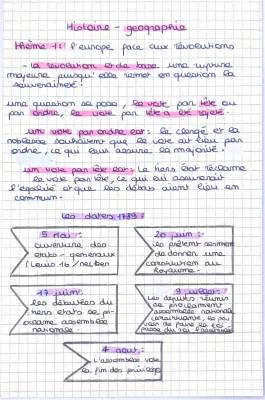 Histoire - geographie
thème 1: l'europe face aux révolutions
- la révolution est de base une rupture
majeure puisqu'elle remet en question la
souveraineté.
une question se pose, le vote par tête ou
par ordre, le vote par tête a été rejeté.
un vote par ordre est: le clergé et la
noblesse souhaitent que le vote ait lieu par
ordre, ce qui leur assure la majorité.
un vote par tête est: Le tiers état réclame
le vote par tête, ce qui est assurerait
l'égalité et que les débats aient lieu en
commun.
les dates 1789:
5 mai:
ouverture des
états-généraux
(Louis 16/necker
20 juin:
ils prêtent serment
de donner une
constitution au
Royaume.
17 juin:
les députés du
tiers états se pro
assemblée
nationale
9 juillet:
les députés réunis
se proclament
assemblée nationale
constituante,
4 août:
L'assemblée vote
la fin des privilèges